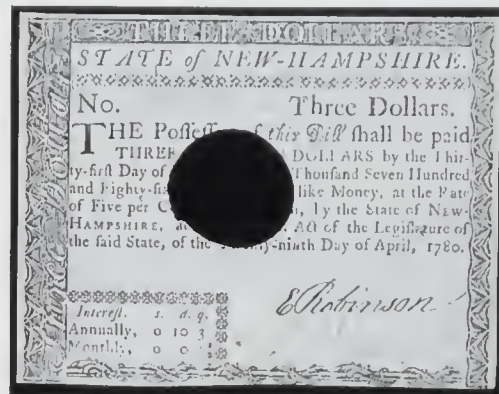 THREE DOLLARS
STATE of NEW-HAMPSHIRE.
No. Three Dollars.
THE Poſſeſſ of this Bill ſhall be paid
THREE DOLLARS by the Thir-
ty-firſt Day of Thouſand Seven Hundred
and Eighty-ſi like Money, at the Rate
of Five per C , by the State of New-
HAMPSHIRE, Act of the Legiſlature of
the ſaid State, of the Twenty-ninth Day of April, 1780.
E Robinson
Intereſt. s. d. q.
Annually, 0 10 3
Monthly, 0 0
Three Dollars